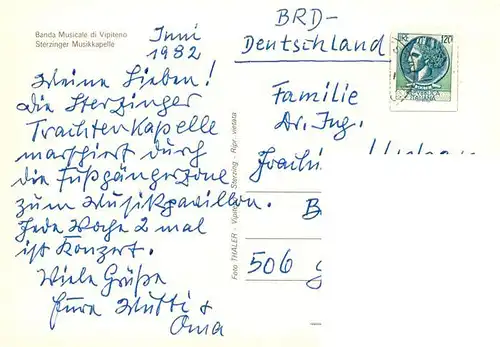 Banda Musicale di Vipiteno
Sterzinger Musikkapelle
Juni
1982
Meine Lieben!
Die Sterzinger
Trachtenkapelle
marschiert durch
die Fußgängerzone
zum Musikpavillon.
Jede Woche 2 mal
ist Konzert.
Viele Grüße
Eure Mutti &
Oma
Foto THALER - Sterzing - Ripr. vietata
BRD-
Deutschland
LIRE 120
ITALIANA
Familie
Dr. Ing.
506